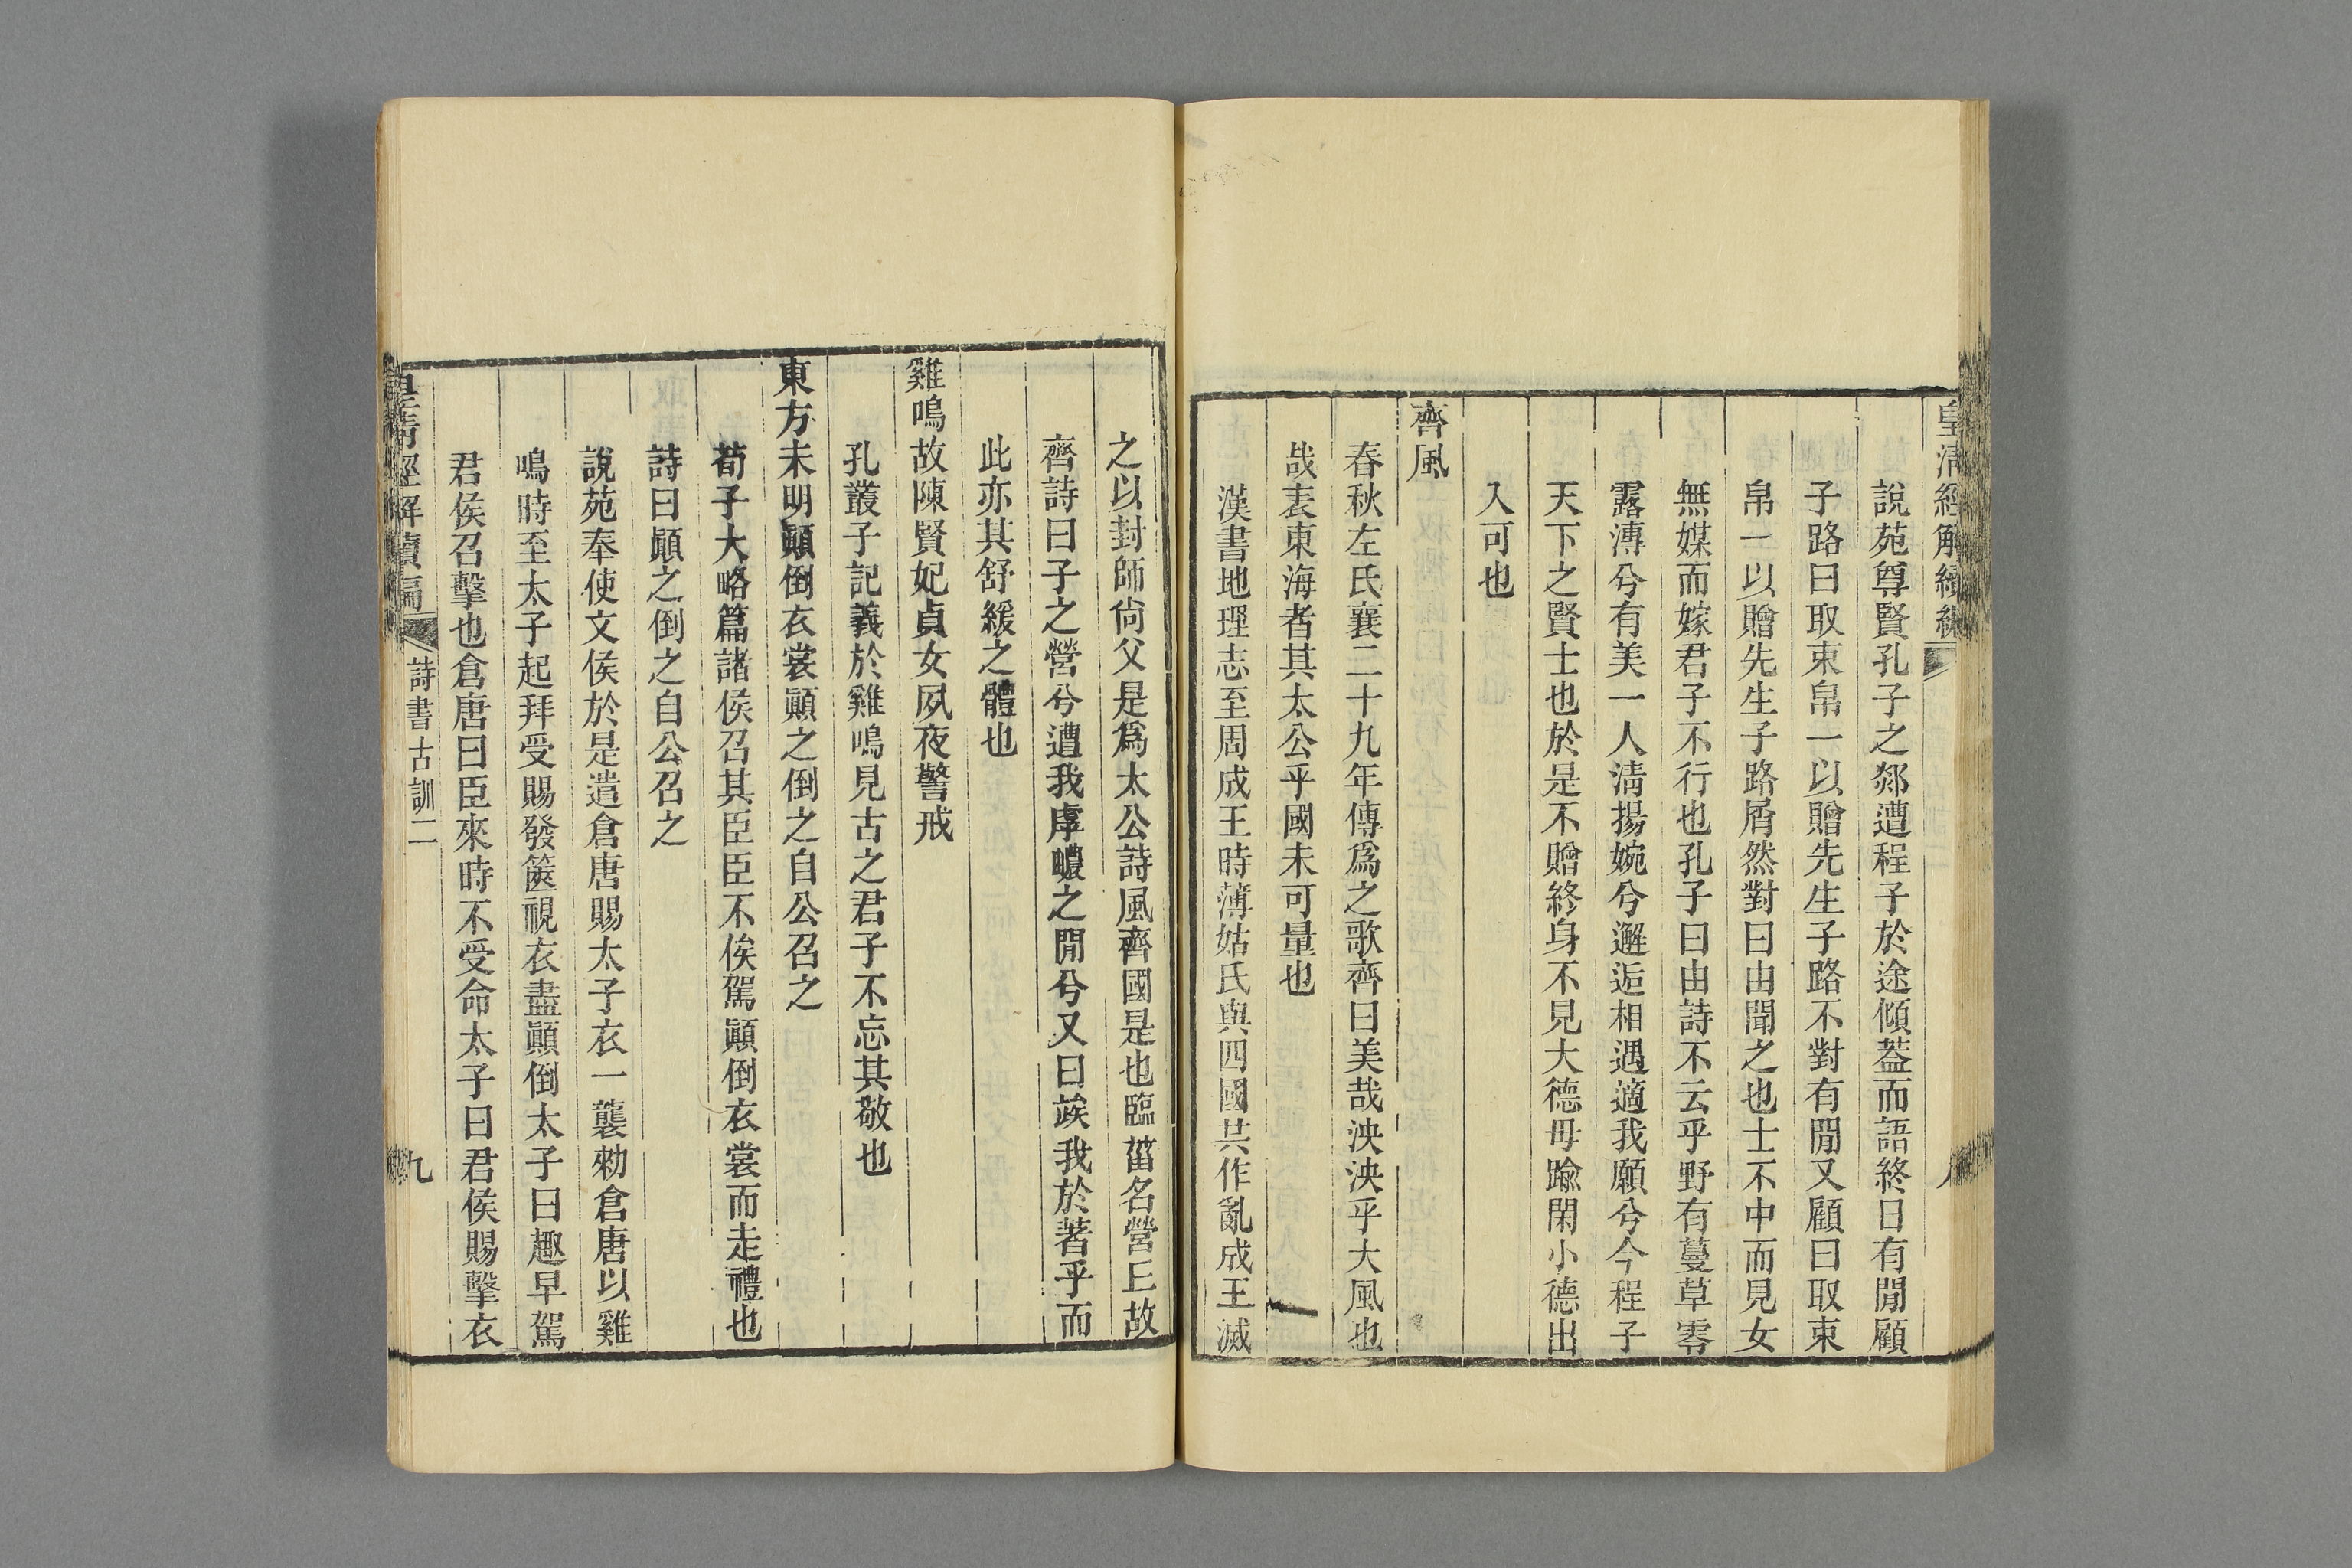 皇清經解續編
說苑尊賢孔子之郯遭程子於途傾葢而語終日有閒顧
子路曰取束帛一以贈先生子路不對有閒又顧曰取束
帛一以贈先生子路屑然對曰由聞之也士不中而見女
無媒而嫁君子不行也孔子曰由詩不云乎野有蔓草零
露漙兮有美一人清揚婉兮邂逅相遇適我願兮今程子
天下之賢士也於是不贈終身不見大德毋踰閑小德出
入可也
齊風
春秋左氏襄二十九年傳爲之歌齊曰美哉泱泱乎大風也
哉表東海者其太公乎國未可量也
漢書地理志至周成王時薄姑氏與四國共作亂成王滅
之以封師尙父是爲太公詩風齊國是也臨菑名營丘故
齊詩曰子之營兮遭我虖嶩之閒兮又曰竢我於著乎而
此亦其舒緩之體也
雞鳴故陳賢妃貞女夙夜警戒
孔叢子記義於雞鳴見古之君子不忘其敬也
東方未明顚倒衣裳顚之倒之自公召之
荀子大略篇諸侯召其臣臣不俟駕顚倒衣裳而走禮也
詩曰顚之倒之自公召之
說苑奉使文侯於是遣倉唐賜太子衣一襲勑倉唐以雞
鳴時至太子起拜受賜發篋視衣盡顚倒太子曰趣早駕
君侯召擊也倉唐曰臣來時不受命太子曰君侯賜擊衣
皇清經解續編 詩書古訓二 九